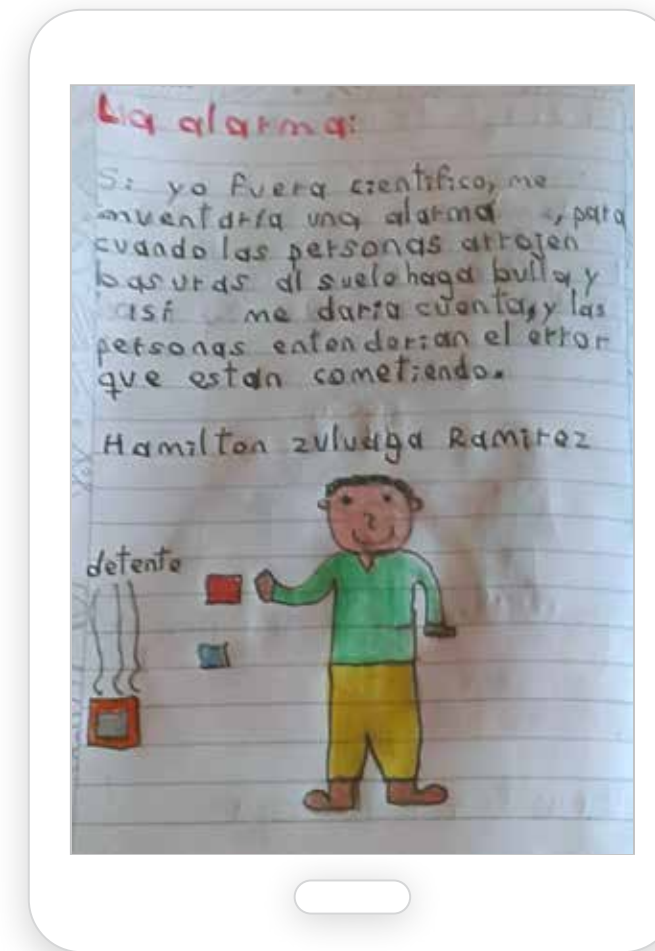 La alarma:
Si yo fuera científico, me
inventaría una alarma , para
cuando las personas arrojen
basuras al suelo haga bulla, y
así me daría cuenta, y las
personas entenderían el error
que estan cometiendo.
Hamilton zuluaga Ramirez
detente